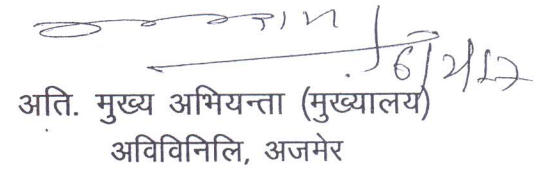 अति. मुख्य अभियन्ता (मुख्यालय)
अविविनिलि, अजमेर